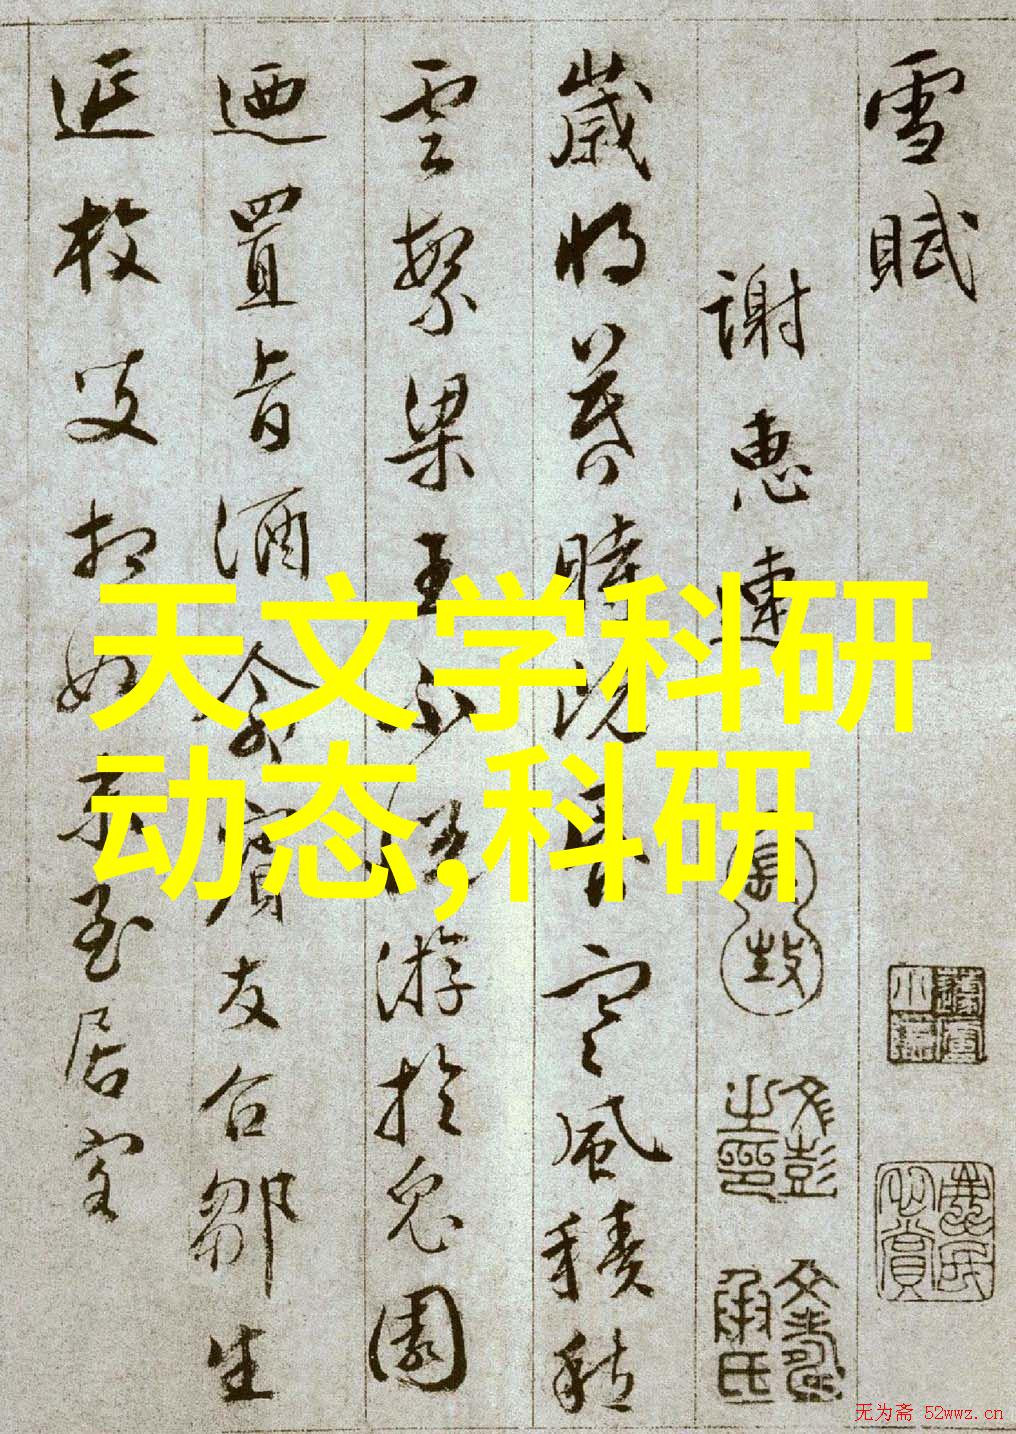 雪賦
謝惠連
歲將暮時既昏寒風積愁
雲繁梁王不悅游於兔園
迺置旨酒命賓友召鄒生
延枚叟相如末至居客
天文学科研
动态,科研
文彭之印
文壽承氏
无为斋 52wwz.cn